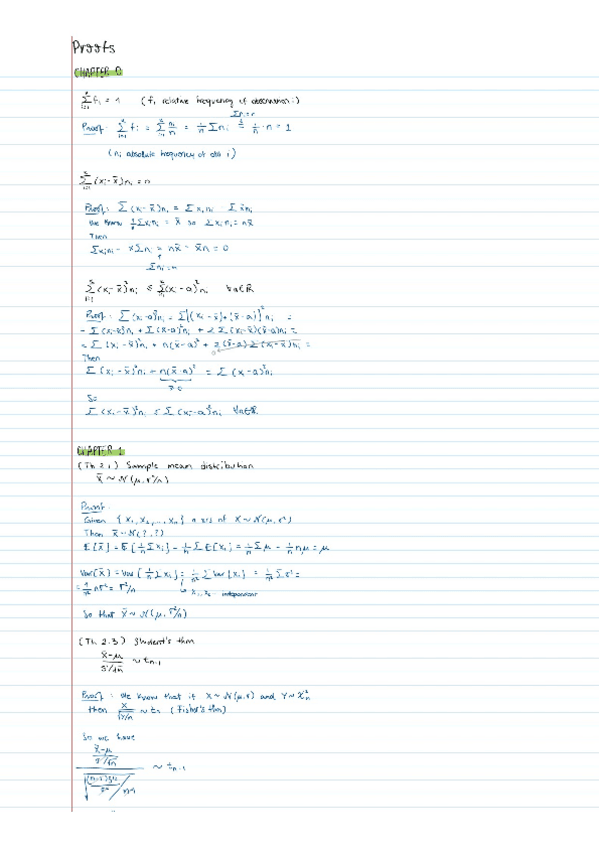 Proofs
CHAPTER 0
Σ fi = 1 (fi relative frequency of observation i)
Σni=n
Proof: Σ fi = Σ ni/n = 1/n Σ ni = 1/n · n = 1
(ni absolute frequency of obs i)
Σ (xi - x̄) ni = 0
Proof: Σ (xi - x̄) ni = Σ xi ni Σ x̄ni
We know 1/n Σ xi ni = x̄ so Σ xi ni = nx̄
Then
Σ xi ni - x̄ Σ ni = nx̄ - x̄n = 0
Σ ni = n
Σ (xi - x̄)² ni ≤ Σ (xi - a)² ni ∀a∈ℝ
Proof: Σ (xi-a)² ni = Σ [(xi - x̄) + (x̄ - a)]² ni =
= Σ (xi-x̄)² ni + Σ (x̄-a)² ni + 2 Σ (xi-x̄)(x̄-a) ni =
= Σ (xi - x̄)² ni + n(x̄-a)² + 2(x̄-a) Σ (xi-x̄) ni =
0
Then
Σ (xi - x̄)² ni + n(x̄-a)² = Σ (xi-a)² ni
≥ 0
So
Σ (xi - x̄)² ni ≤ Σ (xi-a)² ni ∀a∈ℝ
CHAPTER 1
(Th 2.1) Sample mean distribution
x̄ ~ N(μ, σ²/n)
Proof:
Given {x1, x2, ..., xn} a srs of X ~ N(μ, σ²)
Then x̄ ~ N(?, ?)
E[x̄] = E[1/n Σ xi] = 1/n Σ E[xi] = 1/n Σ μ = 1/n nμ = μ
Var[x̄] = Var[1/n Σ xi] = 1/n² Σ Var[xi] = 1/n² Σ σ² =
= 1/n² nσ² = σ²/n
independent
So that x̄ ~ N(μ, σ²/n)
(Th 2.3) Student's thm
x̄-μ / s/√n ~ tn-1
Proof: We know that if X ~ N(μ, σ) and Y ~ χ²n
then X / √Y/n ~ tn (Fisher's thm)
So we have
x̄-μ
σ/√n
~ tn-1
√ (n-1)s² / σ² / n-1